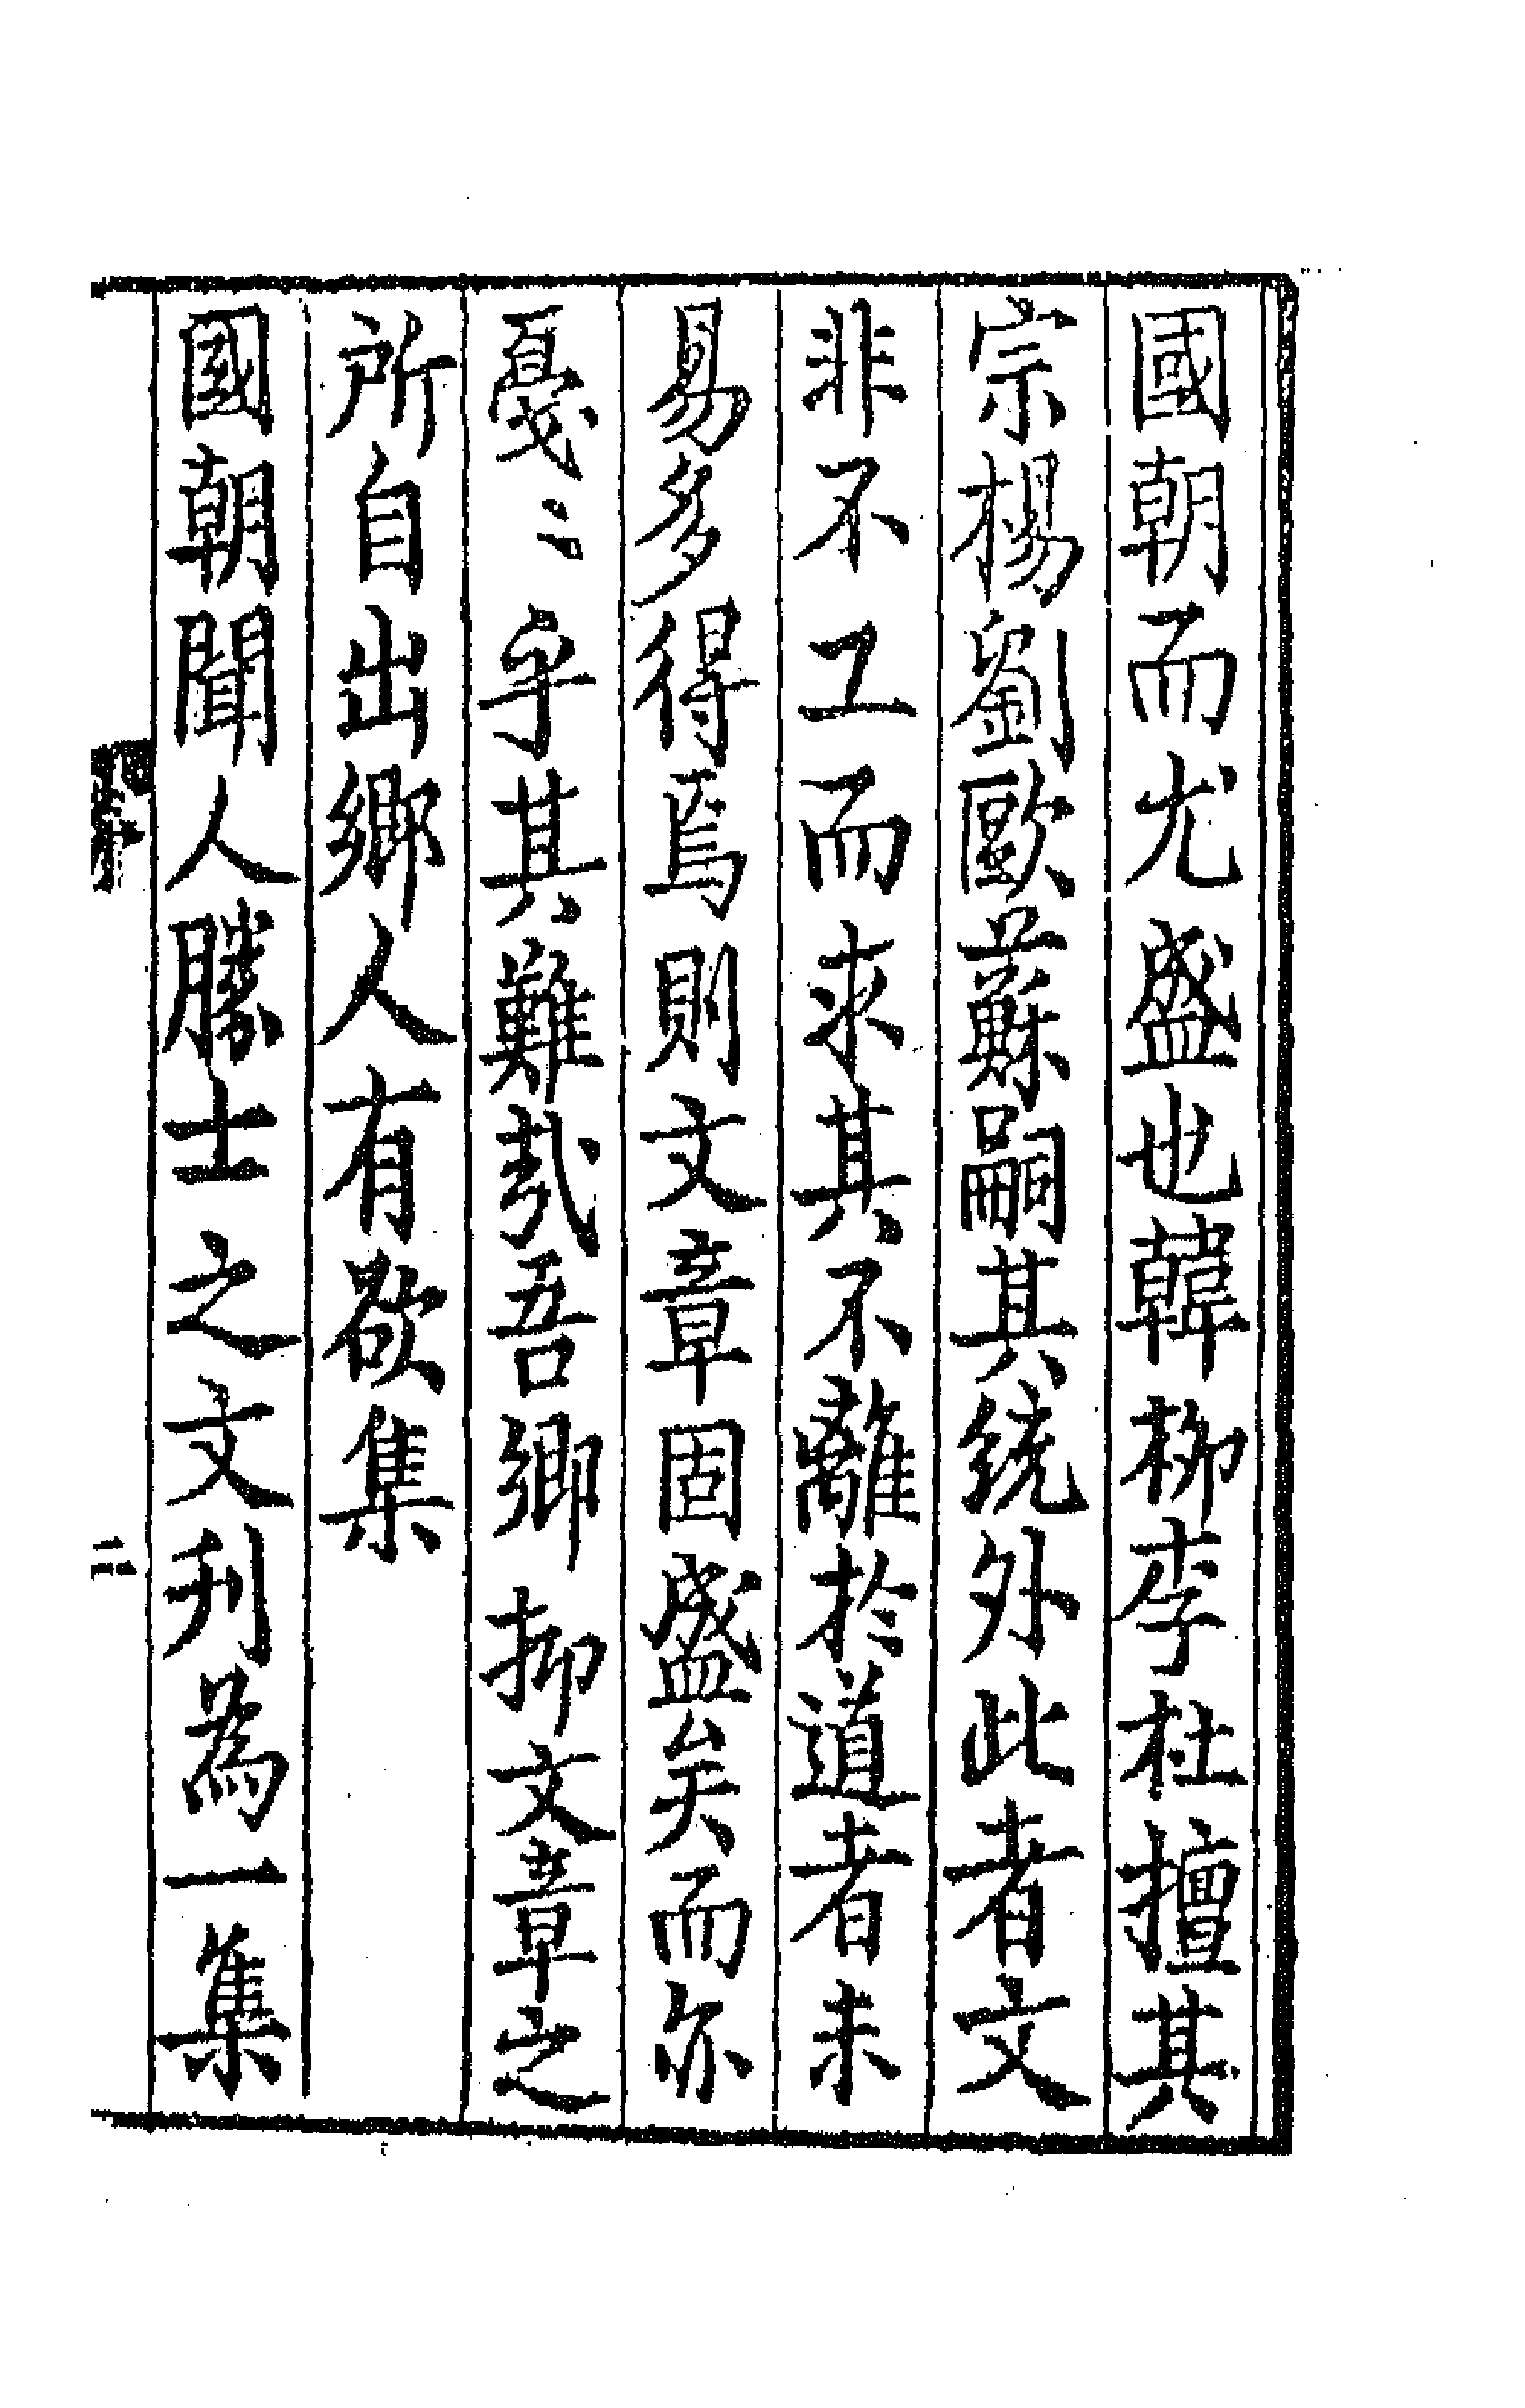 國朝而尤盛也韓柳李杜擅其
宗楊劉歐蘇嗣其統外此者文
非不工而求其不離於道者未
易多得焉則文章固盛矣而亦
戞〻乎其難哉吾鄉抑文章之
所自出鄉人有欲集
國朝聞人勝士之文刋為一集
二